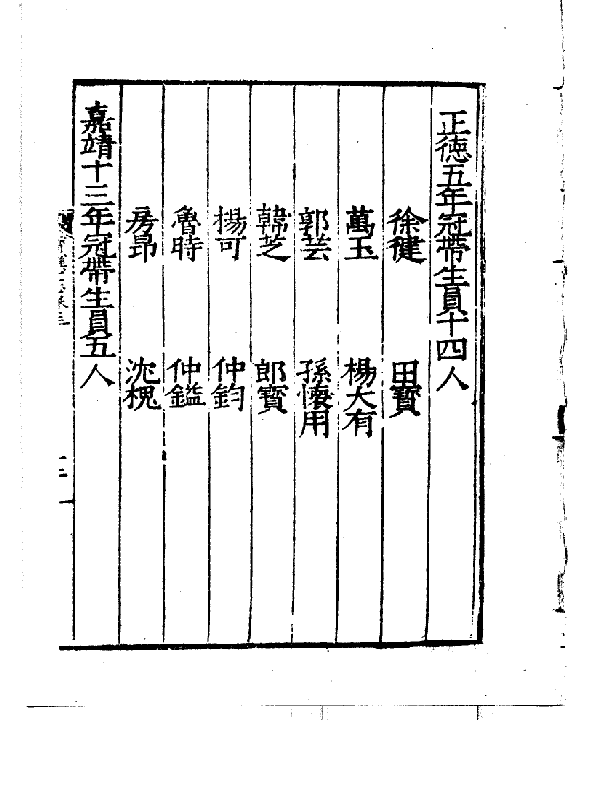 正德五年冠帶生員十四人
徐健　田寳
萬玉　楊大有
郭芸　孫懷用
韓芝　郎寳
楊可　仲鈞
魯時　仲鑑
房昂　沈槐
嘉靖十三年冠帶生員五人